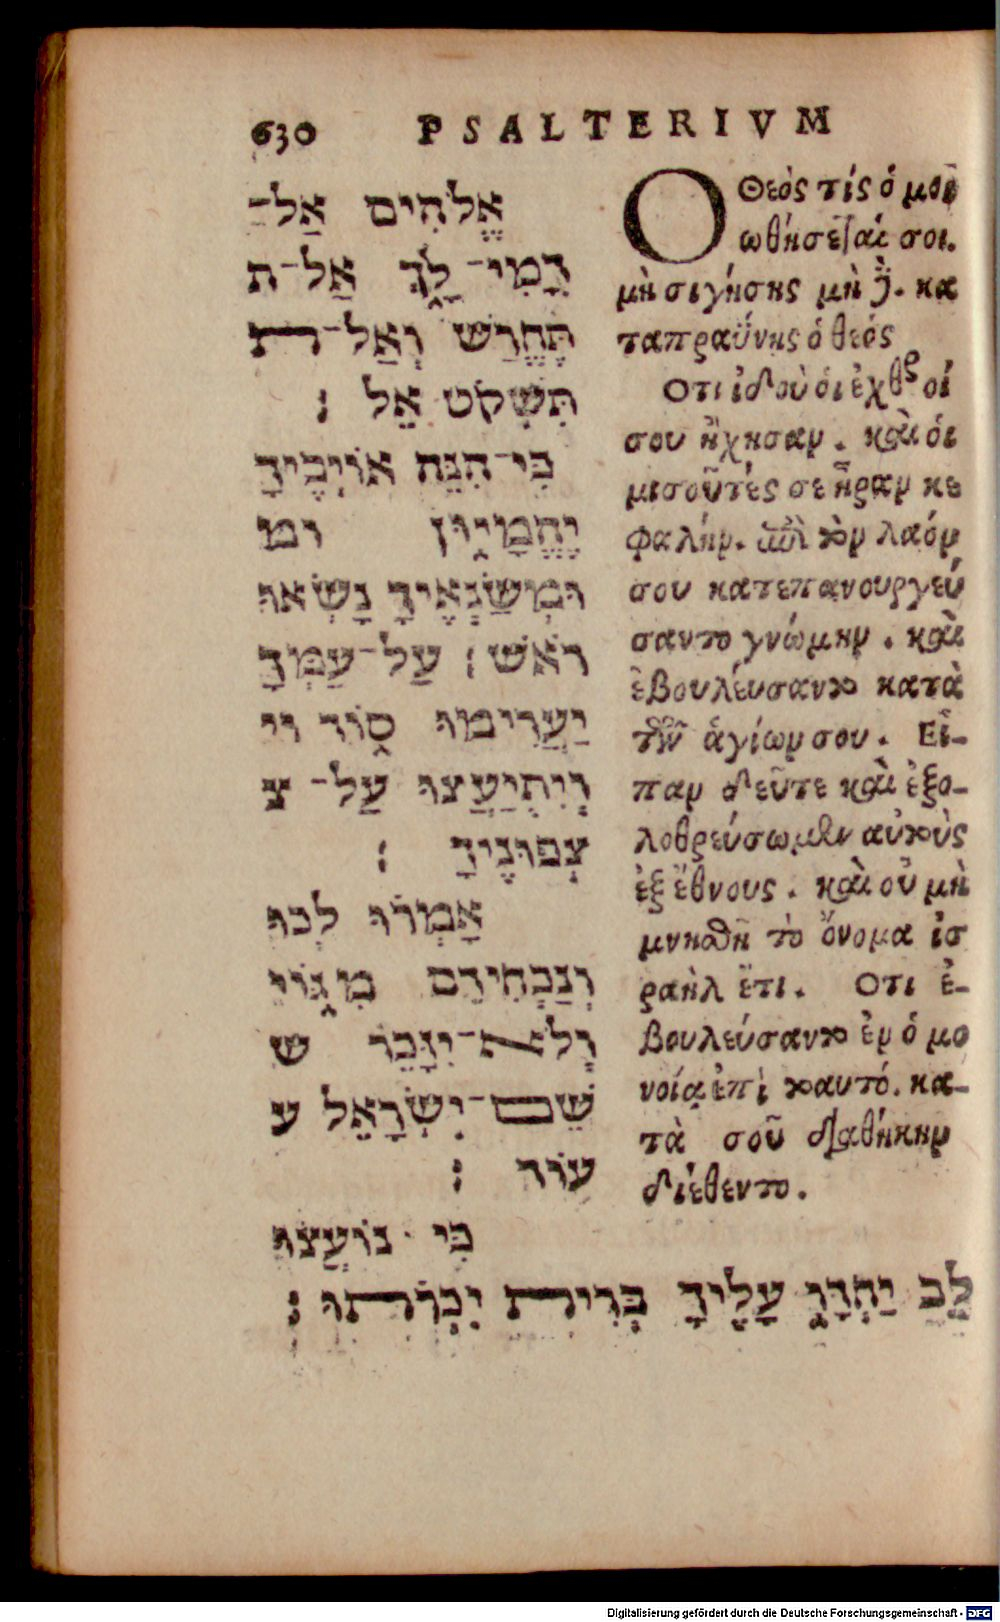 630 PSALTERIVM
אֱלֹהִים אַל־
דֳּמִי־לָךְ אַל־ת
תֶּחֱרַשׁ וְאַל־ת
תִּשְׁקֹט אֵל :
כִּי־הִנֵּה אוֹיְבֶיךָ
יֶהֱמָיוּן ומ
וּמְשַׂנְאֶיךָ נָשְׂאוּ
רֹאשׁ : עַל־עַמְּךָ
יַעֲרִימוּ סוֹד וי
וְיִתְיַעֲצוּ עַל־צ
צְפוּנֶיךָ :
אָמְרוּ לְכוּ
וְנַכְחִידֵם מִגּוֹי
וְלֹא־יִזָּכֵר ש
שֵׁם־יִשְׂרָאֵל ע
עוֹד :
כִּי נוֹעֲצוּ
לֵב יַחְדָּו עָלֶיךָ בְּרִית יִכְרֹתוּ :
Ο Θεὸς τίς ὁ μοι
ωθήσεταί σοι.
μὴ σιγήσῃς μὴ δὲ. κα
ταπραΰνῃς ὁ θεός
Οτι ἰδοὺ ὁι ἐχθροί
σου ἤχησαν. καὶ ὁι
μισοῦντές σε ἦραν κε
φαλήν. ἐπὶ τὸν λαόν
σου κατεπανουργεύ
σαντο γνώμην. καὶ
ἐβουλεύσαντο κατὰ
τῶν ἁγίων σου. Εἶ-
παν δεῦτε καὶ ἐξο-
λοθρεύσωμεν αὐτοὺς
ἐξ ἔθνους. καὶ οὐ μὴ
μνησθῇ τὸ ὄνομα ἰσ
ραὴλ ἔτι. Οτι ἐ-
βουλεύσαντο ἐν ὁ μο
νοίᾳ ἐπὶ τοαυτό. κα-
τὰ σοῦ διαθήκην
διέθεντο.
Digitalisierung gefördert durch die Deutsche Forschungsgemeinschaft - DFG